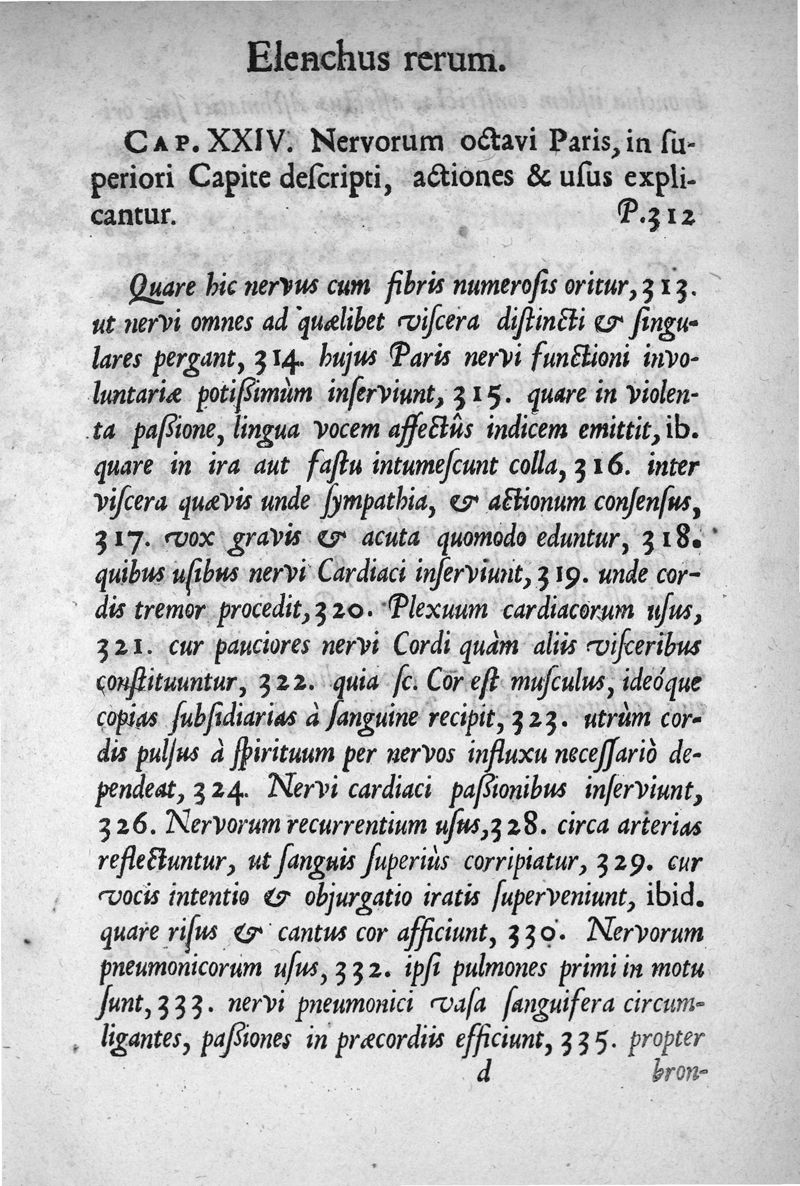 Elenchus rerum.
CAP. XXIV. Nervorum octavi Paris, in ſu-
periori Capite deſcripti, actiones & uſus expli-
cantur. P.312
Quare hic nervus cum fibris numeroſis oritur, 313.
ut nervi omnes ad quælibet viſcera diſtincti & ſingu-
lares pergant, 314. hujus Paris nervi functioni invo-
luntariæ potiſſimùm inſerviunt, 315. quare in violen-
ta paſſione, lingua vocem affectûs indicem emittit, ib.
quare in ira aut faſtu intumeſcunt colla, 316. inter
viſcera quævis unde ſympathia, & actionum conſenſus,
317. vox gravis & acuta quomodo eduntur, 318.
quibus uſibus nervi Cardiaci inſerviunt, 319. unde cor-
dis tremor procedit, 320. Plexuum cardiacorum uſus,
321. cur pauciores nervi Cordi quàm aliis viſceribus
conſtituuntur, 322. quia ſc. Cor eſt muſculus, ideóque
copias ſubſidiarias à ſanguine recipit, 323. utrùm cor-
dis pulſus à ſpirituum per nervos influxu neceſſariò de-
pendeat, 324. Nervi cardiaci paſſionibus inſerviunt,
326. Nervorum recurrentium uſus, 328. circa arterias
reflectuntur, ut ſanguis ſuperiùs corripiatur, 329. cur
vocis intentio & objurgatio iratis ſuperveniunt, ibid.
quare riſus & cantus cor afficiunt, 330. Nervorum
pneumonicorum uſus, 332. ipſi pulmones primi in motu
ſunt, 333. nervi pneumonici vaſa ſanguifera circum-
ligantes, paſſiones in præcordiis efficiunt, 335. propter
d bron-